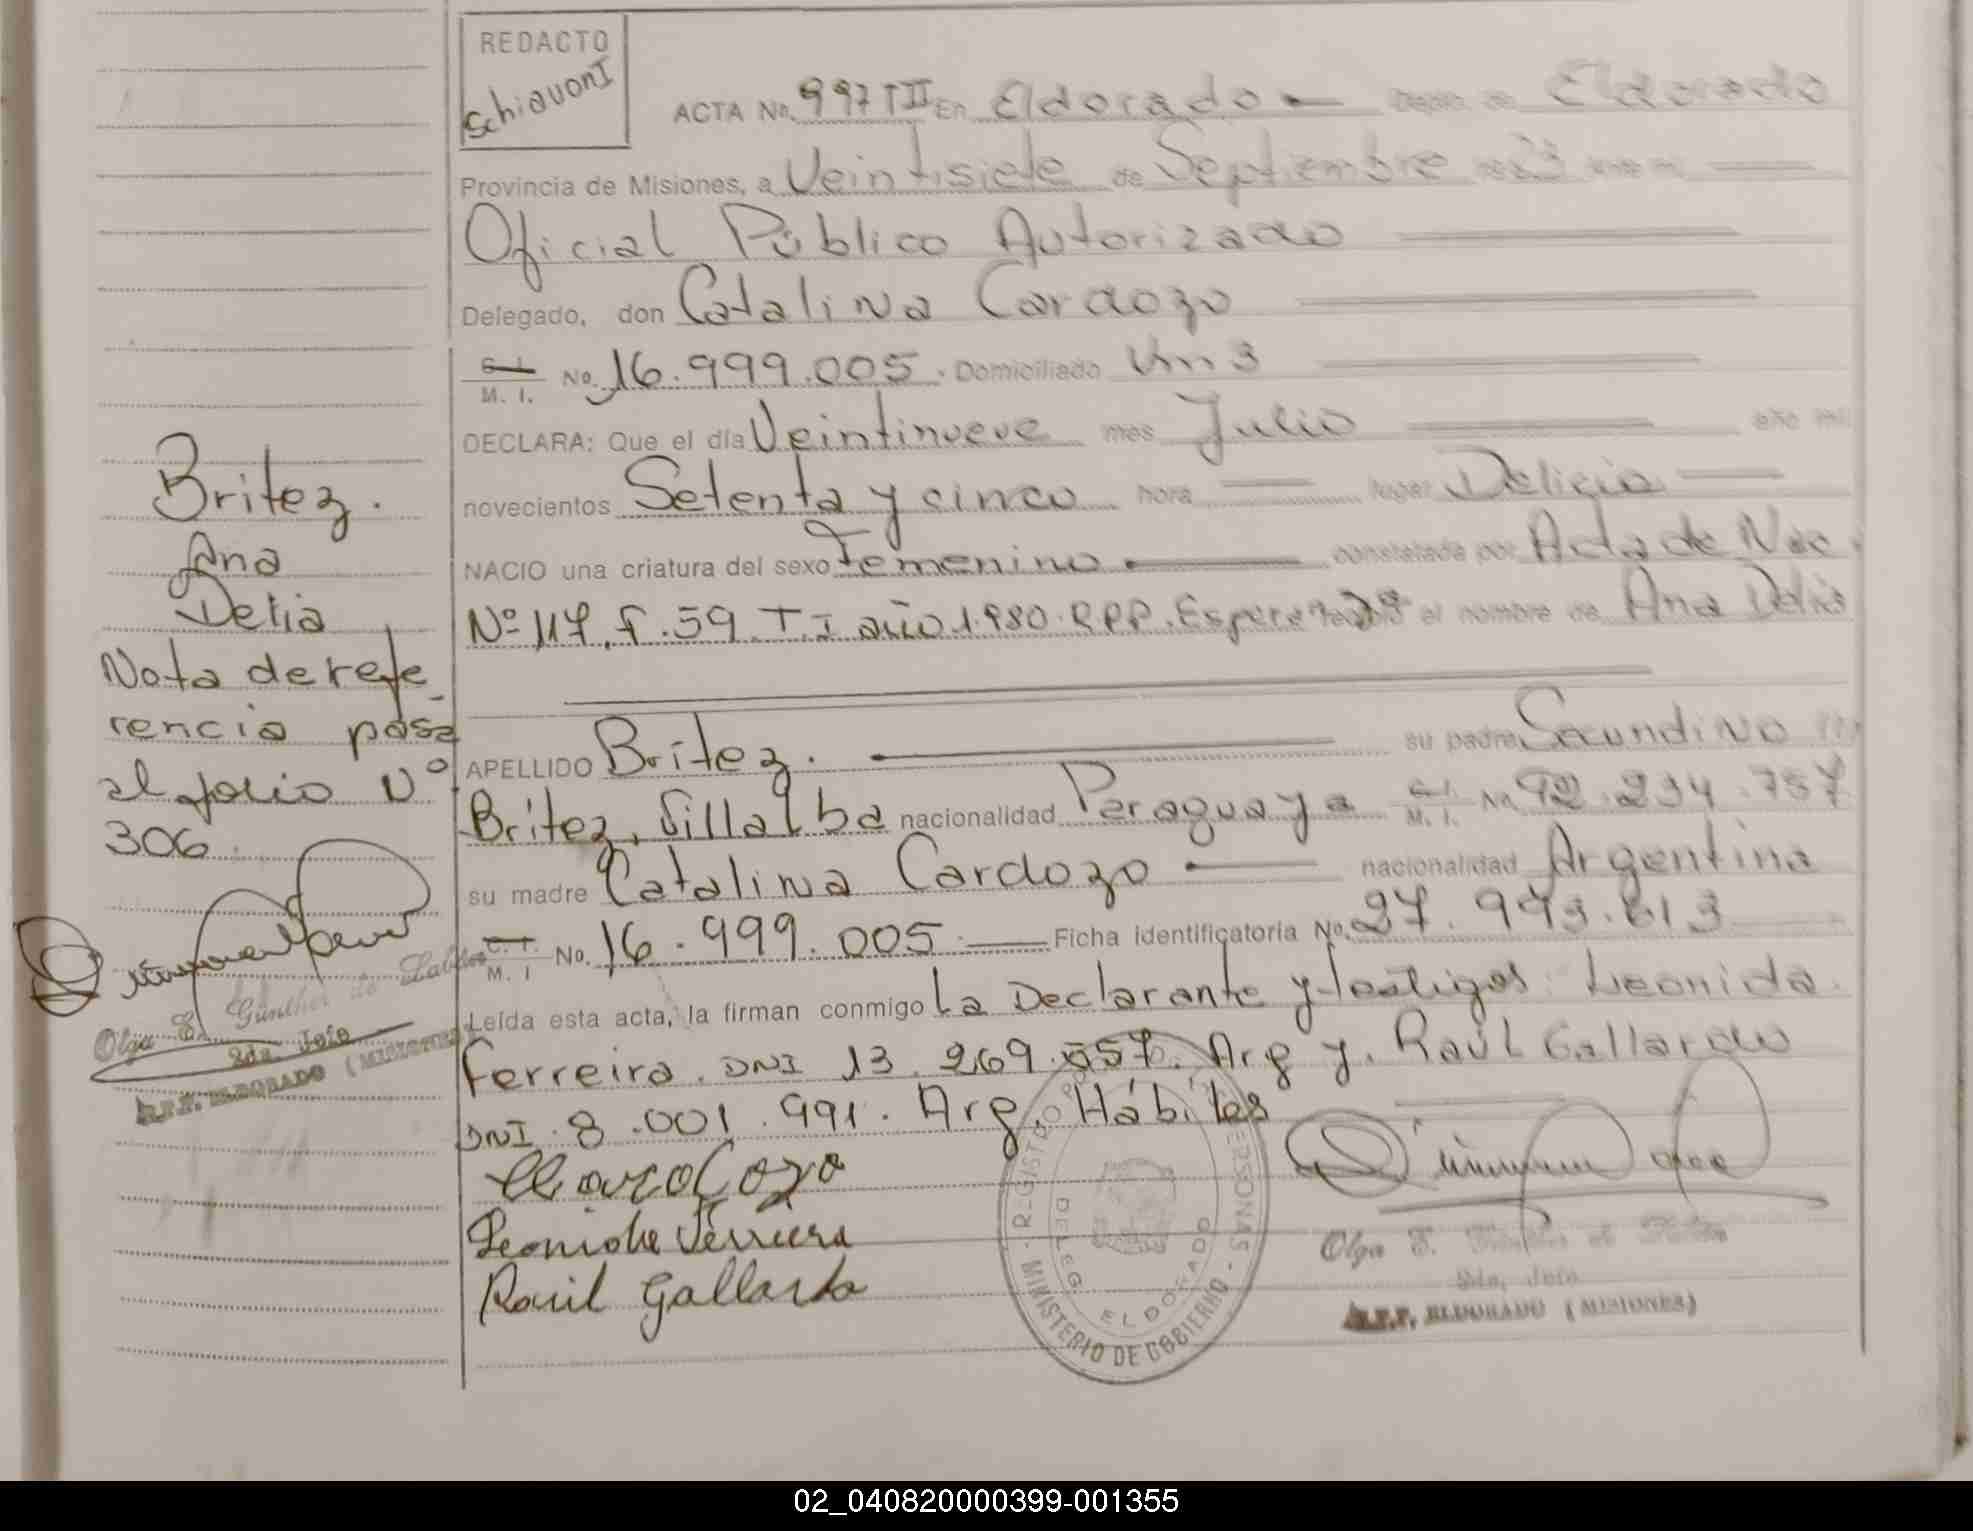 REDACTO
SchiavonI
ACTA No. 997 TII En Eldorado Depto. de Eldorado
Provincia de Misiones, a Veintisiete de Septiembre
Oficial Público Autorizado
Delegado, don Catalina Cardozo
C. I. M. I. No. 16.999.005. Domiciliado Km 3
DECLARA: Que el día Veintinueve mes Julio año mil
novecientos Setenta y cinco hora lugar Delicia
NACIO una criatura del sexo Femenino constatada por Acta de Nac.
Nº 117, F. 59 T I año 1.980. R.P.P. el nombre de Ana Delia
APELLIDO Britez. su padre Secundino
Britez, Sillalba nacionalidad Paraguaya C. I. M. I. No. 92.234.757
su madre Catalina Cardozo nacionalidad Argentina
C. I. M. I No. 16.999.005. Ficha identificatoria No. 27.943.613
Leída esta acta, la firman conmigo La Declarante y testigos: Leonida
Ferreira. DNI 13.269.557. Arg y. Raúl Gallardo
DNI. 8.001.991. Arg. Hábiles
Leonida Ferreira
Raúl Gallardo
Britez.
Ana
Delia
Nota de refe-
rencia pasa
al folio Nº
306.
Olga E. Günther de
2da. Jefe
R.P.P. ELDORADO (MISIONES)
REGISTRO PERSONAS - MINISTERIO DE GOBIERNO -
DELEG. ELDORADO
Olga E.
2da. Jefe
R.P.P. ELDORADO (MISIONES)
02_040820000399-001355